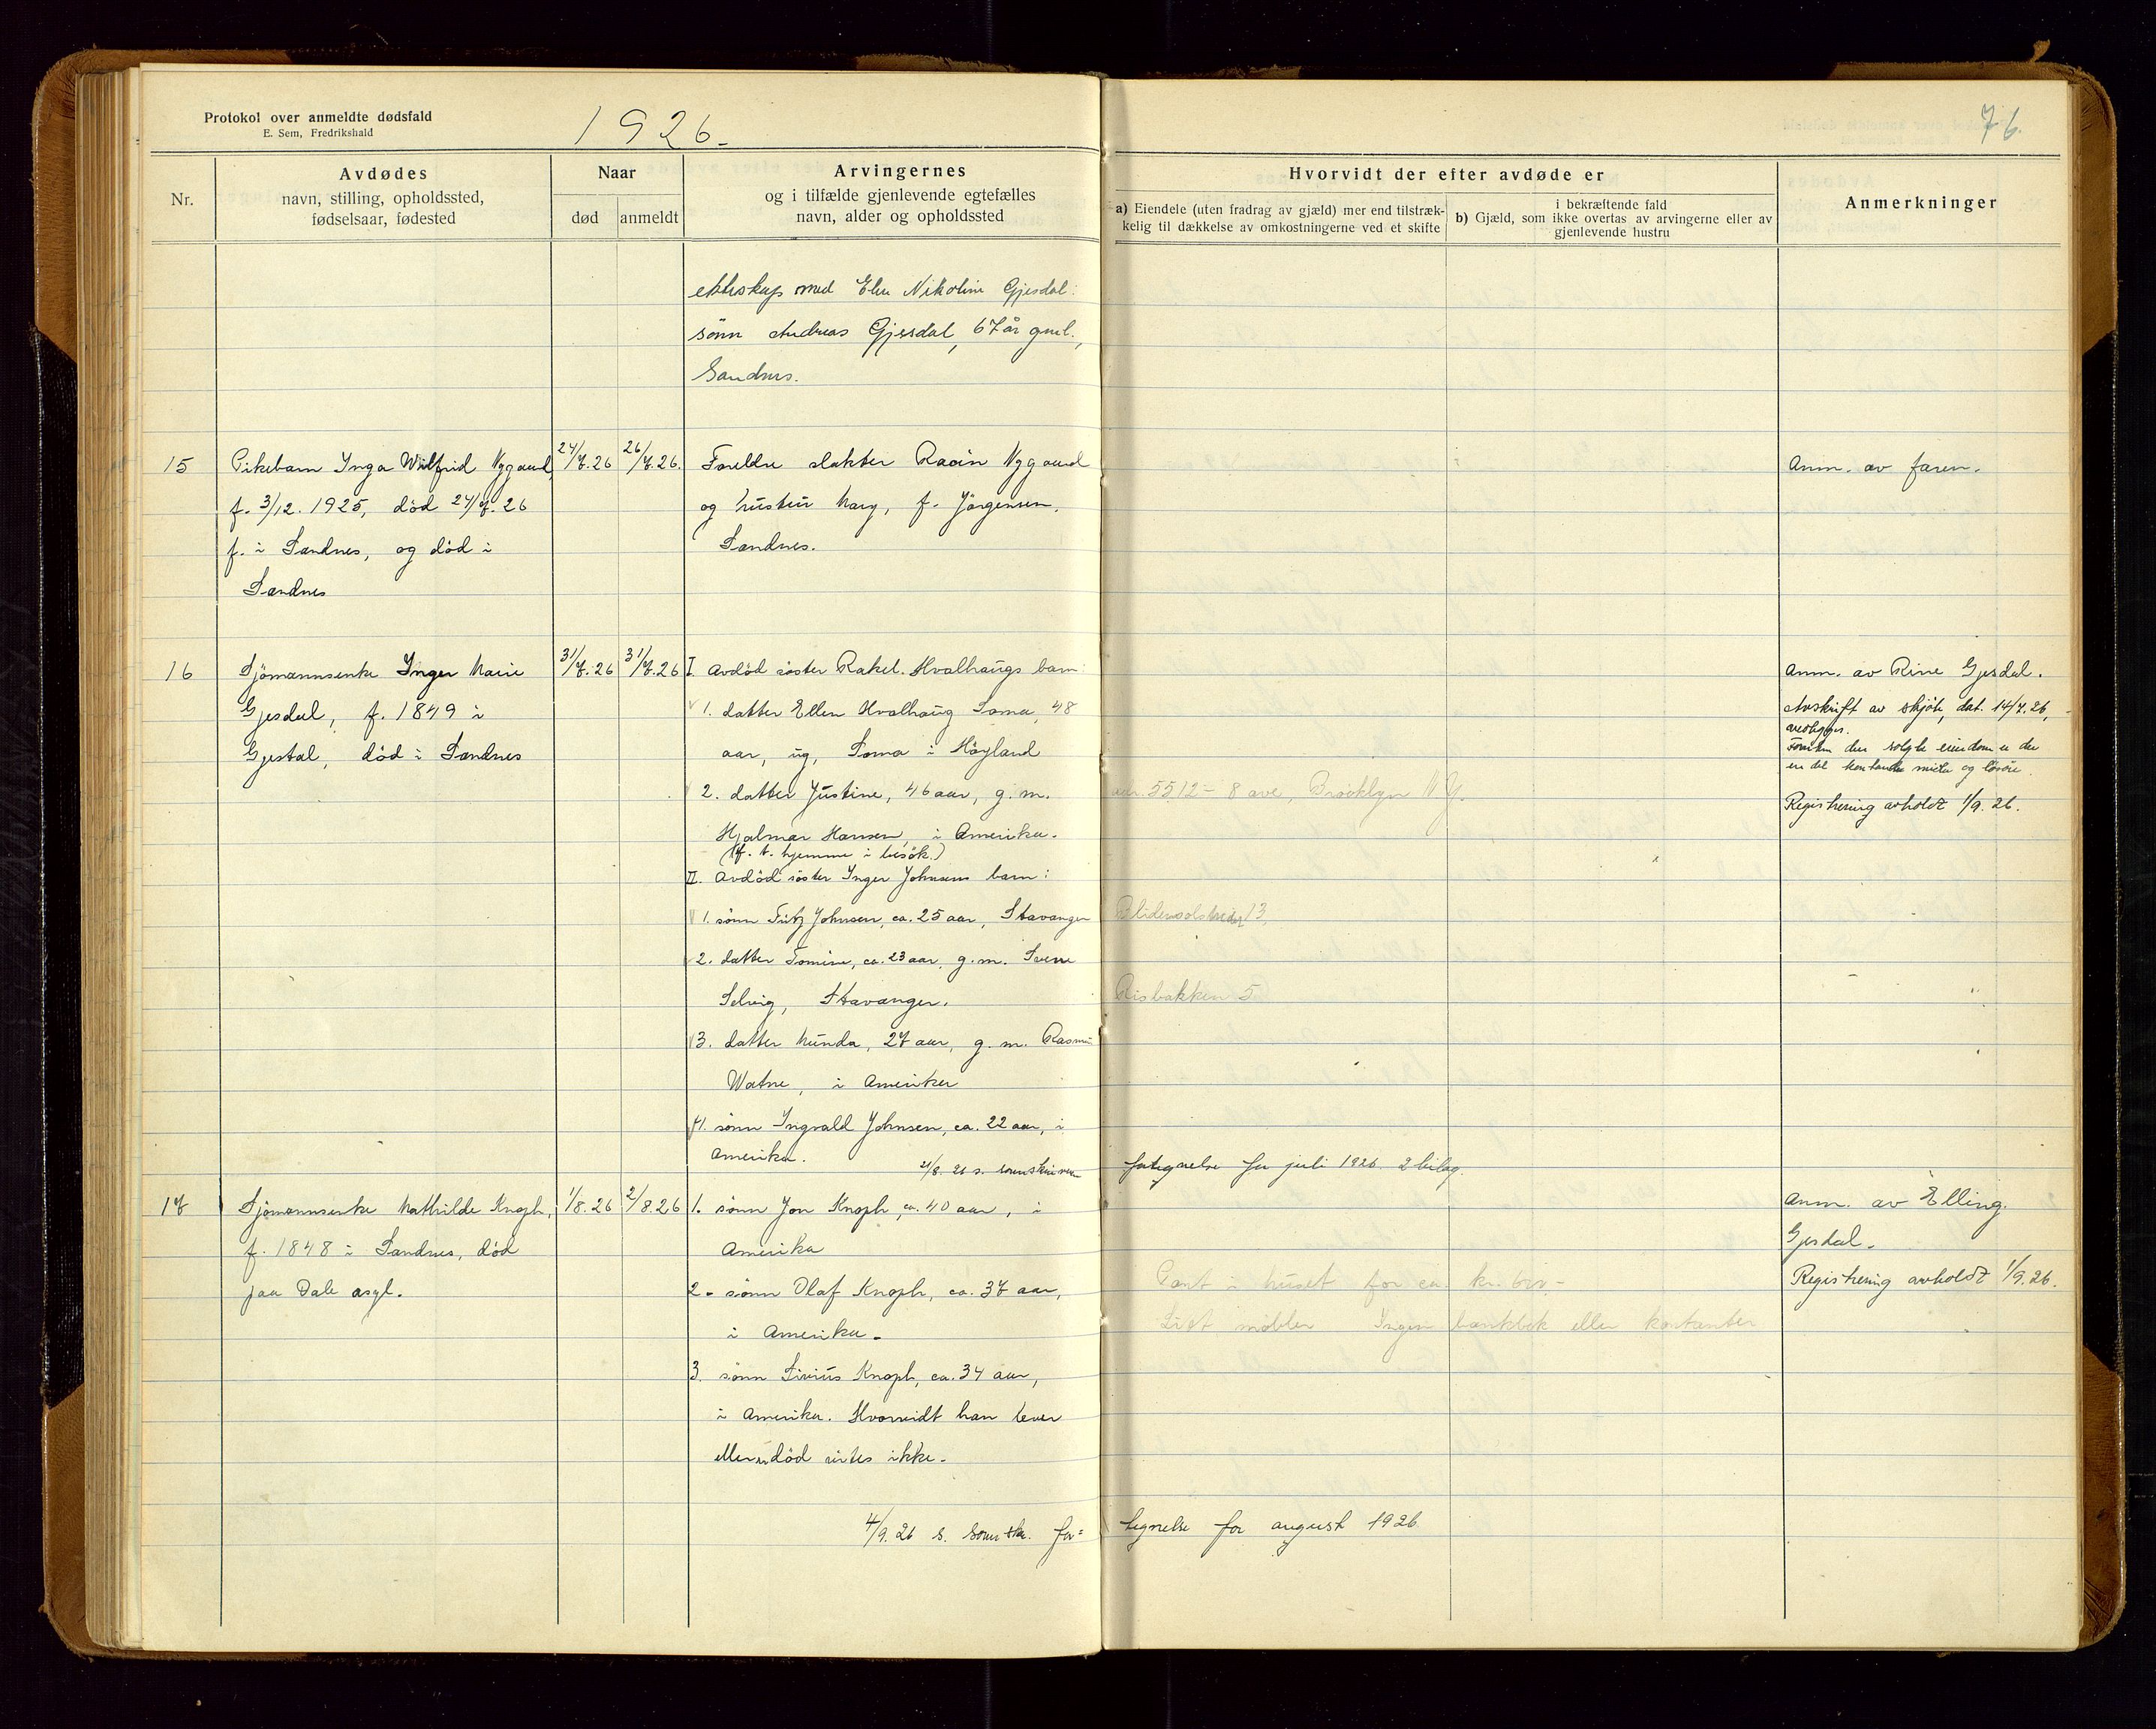 Protokol over anmeldte dødsfald
E. Sem, Fredrikshald
1926.
76.
Nr.
Avdødes
navn, stilling, opholdssted,
fødselsaar, fødested
Naar
død
anmeldt
Arvingernes
og i tilfælde gjenlevende egtefælles
navn, alder og opholdssted
Hvorvidt der efter avdøde er
a) Eiendele (uten fradrag av gjæld) mer end tilstræk-
kelig til dækkelse av omkostningerne ved et skifte
i bekræftende fald
b) Gjæld, som ikke overtas av arvingerne eller av
gjenlevende hustru
Anmerkninger
ekteskap med Nikoline Gjesdal:
sønn Andreas Gjesdal, 67 år gml.,
Sandnes.
15
Pikebarn Inga Wilfrid Nygaard,
f. 3/12. 1925, død 24/7. 26
f. i Sandnes, og død i
Sandnes
24/7.26
26/7.26.
Foreldre slakter Nygaard
og hustru Mary, f. Jörgensen,
Sandnes.
Anm. av faren.
16
Sjömannsenke Inger Marie
Gjesdal, f. 1849 i
Gjestal, död i Sandnes
31/7.26
31/7.26
I. Avdöd söster Rakel Hvalhaugs barn:
1. datter Ellen Hvalhaug Soma, 48
aar, ug, Soma i Höyland
2. datter Justine, 46 aar, g.m.
Hjalmar Hansen, i Amerika.
(f. t. hjemme i besök.)
II. Avdöd söster Inger Johnsens barn:
1. sönn Johnsen, ca. 25 aar, Stavanger
2. datter Tomine, ca. 23 aar, g.m.
Selvig, Stavanger.
3. datter Munda, 27 aar, g.m.
Watne, i Amerika
4. sönn Ingvald Johnsen, ca. 22 aar, i
Amerika.
5512 - 8 ave, Brooklyn N.Y.
13
Risbakken 5
Anm. av Rine Gjesdal.
Avskrift av skjöte, dat. 14/7.26,
vedligger.
Foruten den solgte eiendom er der
en del kontante midler og lösöre.
Registrering avholdt 1/9.26.
2/8. 26 s. sorenskriveren
fortegnelse for juli 1926. 2 bilag.
17
Sjömannsenke Mathilde Knoph,
f. 1848 i Sandnes, död
paa Dale asyl.
1/8.26
2/8.26
1. sönn Jon Knoph, ca. 40 aar, i
Amerika
2. sönn Olaf Knoph, ca. 37 aar,
i Amerika.
3. sönn Sirius Knoph, ca. 34 aar,
i Amerika. Hvorvidt han lever
eller er död vites ikke.
Pant i huset for ca. kr.
Litt möbler Ingen bankbok eller kontanter
Anm. av Elling
Gjesdal.
Registrering avholdt 1/9.26.
4/9.26 s. sorenskr. for=
tegnelse for august 1926.